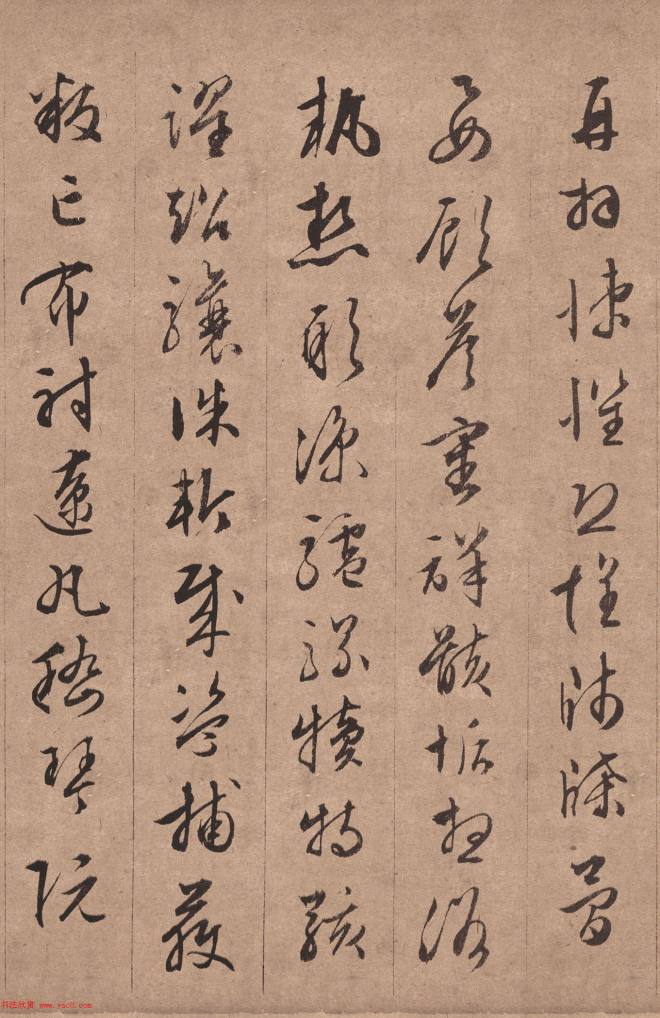 再拜悚懼恐惶牋牒簡
要顧答審詳骸垢想浴
執熱願涼驢騾犢特駭
躍超驤誅斬賊盜捕獲
叛亡布射遼丸嵇琴阮
书法欣赏 www.yac8.com